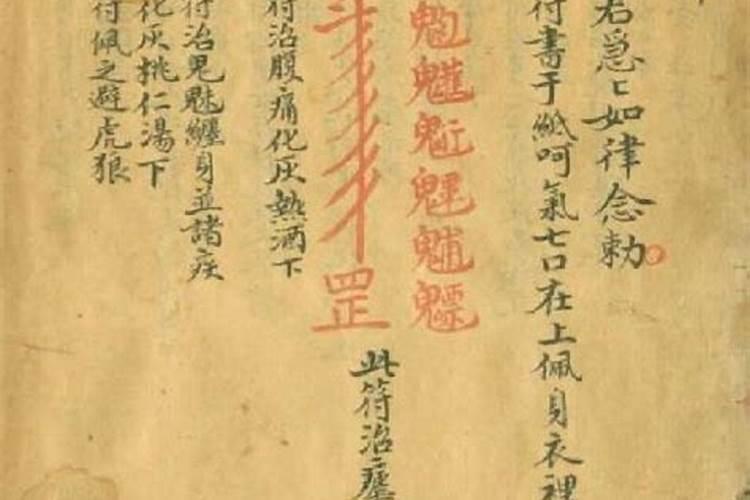 君急〻如律念勅
符書于紙呵氣七口在上佩身衣裡
魒
斗罡
此符治瘧
符治腹痛化灰熱酒下
符治鬼魅纏身並諸疾
化灰桃仁湯下
符佩之避虎狼